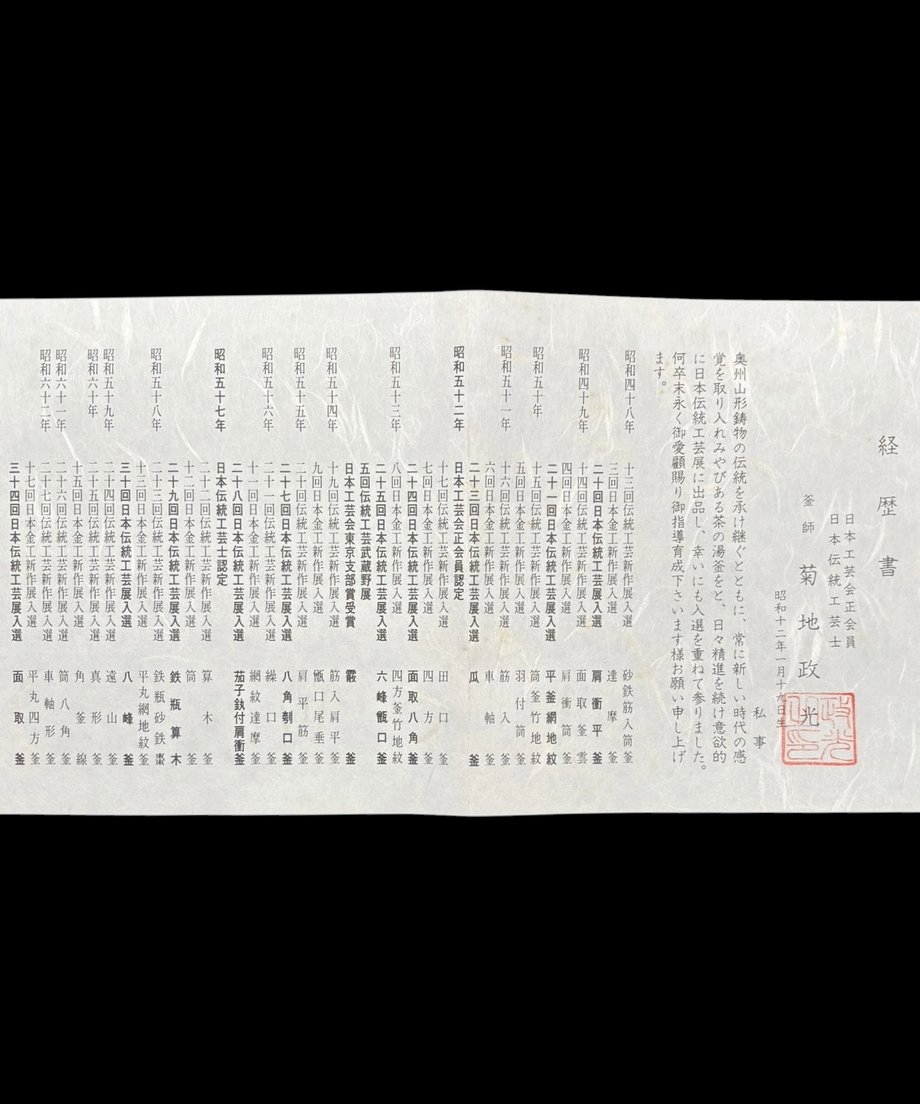 経歴書
日本工芸会正会員
日本伝統工芸士
釜師 菊地政光
昭和十二年一月十九日生
政光之印
私事
奥州山形鋳物の伝統を承け継ぐとともに、常に新しい時代の感
覚を取り入れみやびある茶の湯釜をと、日々精進を続け意欲的
に日本伝統工芸展に出品し、幸いにも入選を重ねて参りました。
何卒末永く御愛顧賜り御指導育成下さいます様お願い申し上げ
ます。
昭和四十八年 十三回伝統工芸新作展入選 砂鉄筋入筒釜
三回日本金工新作展入選 達摩釜
二十回日本伝統工芸展入選 肩衝平釜
昭和四十九年 十四回伝統工芸新作展入選 面取釜雲
四回日本金工新作展入選 肩衝筒釜
二十一回日本伝統工芸展入選 平釜網地紋
昭和五十年 十五回伝統工芸新作展入選 筒釜竹地紋
五回日本金工新作展入選 羽付筒釜
昭和五十一年 十六回伝統工芸新作展入選 筋入釜
六回日本金工新作展入選 車軸釜
二十三回日本伝統工芸展入選 瓜釜
昭和五十二年 日本工芸会正会員認定
十七回伝統工芸新作展入選 田口釜
七回日本金工新作展入選 四方釜
二十四回日本伝統工芸展入選 面取八角釜
昭和五十三年 八回日本金工新作展入選 四方釜竹地紋
二十五回日本伝統工芸展入選 六峰甑口釜
五回伝統工芸武蔵野展
日本工芸会東京支部賞受賞 霰釜
昭和五十四年 十九回伝統工芸新作展入選 筋入肩平釜
九回日本金工新作展入選 甑口尾垂釜
昭和五十五年 二十回伝統工芸新作展入選 肩平筋釜
二十七回日本伝統工芸展入選 八角刳口釜
昭和五十六年 二十一回伝統工芸新作展入選 繰口釜
十一回日本金工新作展入選 網紋達摩釜
二十八回日本伝統工芸展入選 茄子釻付肩衝釜
昭和五十七年 日本伝統工芸士認定
二十二回伝統工芸新作展入選 算木釜
十二回日本金工新作展入選 筒釜
二十九回日本伝統工芸展入選 鉄瓶算木
昭和五十八年 二十三回伝統工芸新作展入選 鉄瓶砂鉄棗
十三回日本金工新作展入選 平丸網地紋釜
三十回日本伝統工芸展入選 八峰釜
昭和五十九年 二十四回伝統工芸新作展入選 遠山釜
昭和六十年 二十五回伝統工芸新作展入選 真形釜
十五回日本金工新作展入選 角釜線
昭和六十一年 二十六回伝統工芸新作展入選 筒八角釜
昭和六十二年 二十七回伝統工芸新作展入選 車軸形釜
十七回日本金工新作展入選 平丸四方釜
三十四回日本伝統工芸展入選 面取釜